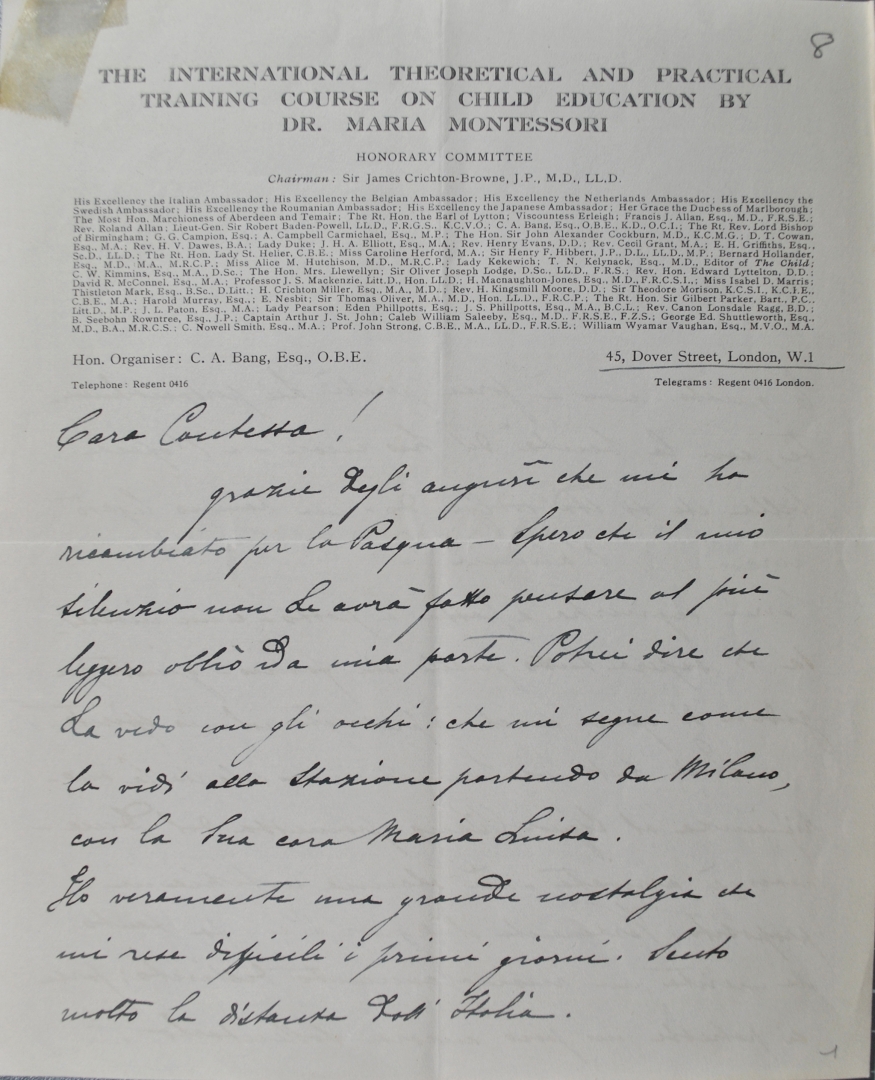 8
THE INTERNATIONAL THEORETICAL AND PRACTICAL
TRAINING COURSE ON CHILD EDUCATION BY
DR. MARIA MONTESSORI
HONORARY COMMITTEE
Chairman: Sir James Crichton-Browne, J.P., M.D., LL.D.
His Excellency the Italian Ambassador; His Excellency the Belgian Ambassador; His Excellency the Netherlands Ambassador; His Excellency the
Swedish Ambassador; His Excellency the Roumanian Ambassador; His Excellency the Japanese Ambassador; Her Grace the Duchess of Marlborough;
The Most Hon. Marchioness of Aberdeen and Temair; The Rt. Hon. the Earl of Lytton; Viscountess Erleigh; Francis J. Allan, Esq., M.D., F.R.S.E.;
Rev. Roland Allan; Lieut-Gen. Sir Robert Baden-Powell, LL.D., F.R.G.S., K.C.V.O.; C. A. Bang, Esq., O.B.E., K.D., O.C.I.; The Rt. Rev. Lord Bishop
of Birmingham; G. G. Campion, Esq.; A. Campbell Carmichael, Esq., M.P.; The Hon. Sir John Alexander Cockburn, M.D., K.C.M.G.; D. T. Cowan,
Esq., M.A.; Rev. H. V. Dawes, B.A.; Lady Duke; J. H. A. Elliott, Esq., M.A.; Rev. Henry Evans, D.D.; Rev. Cecil Grant, M.A.; E. H. Griffiths, Esq.,
Sc.D., LL.D.; The Rt. Hon. Lady St. Helier, C.B.E.; Miss Caroline Herford, M.A.; Sir Henry F. Hibbert, J.P., D.L., LL.D., M.P.; Bernard Hollander,
Esq., M.D., M.A., M.R.C.P.; Miss Alice M. Hutchison, M.D., M.R.C.P.; Lady Kekewich; T. N. Kelynack, Esq., M.D., Editor of The Child;
C. W. Kimmins, Esq., M.A., D.Sc.; The Hon. Mrs. Llewellyn; Sir Oliver Joseph Lodge, D.Sc., LL.D., F.R.S.; Rev. Hon. Edward Lyttelton, D.D.;
David R. McConnel, Esq., M.A.; Professor J. S. Mackenzie, Litt.D., Hon. LL.D.; H. Macnaughton-Jones, Esq., M.D., F.R.C.S.I.; Miss Isabel D. Marris;
Thistleton Mark, Esq., B.Sc., D.Litt.; H. Crichton Miller, Esq., M.A., M.D.; Rev. H. Kingsmill Moore, D.D.; Sir Theodore Morison, K.C.S.I., K.C.I.E.,
C.B.E., M.A.; Harold Murray, Esq.; E. Nesbit; Sir Thomas Oliver, M.A., M.D., Hon. LL.D., F.R.C.P.; The Rt. Hon. Sir Gilbert Parker, Bart., P.C.,
Litt.D., M.P.; J. L. Paton, Esq., M.A.; Lady Pearson; Eden Phillpotts, Esq.; J. S. Phillpotts, Esq., M.A., B.C.L.; Rev. Canon Lonsdale Ragg, B.D.;
B. Seebohn Rowntree, Esq., J.P.; Captain Arthur J. St. John; Caleb William Saleeby, Esq., M.D., F.R.S.E., F.Z.S.; George Ed. Shuttleworth, Esq.,
M.D., B.A., M.R.C.S.; C. Nowell Smith, Esq., M.A.; Prof. John Strong, C.B.E., M.A., LL.D., F.R.S.E.; William Wyamar Vaughan, Esq., M.V.O., M.A.
Hon. Organiser: C. A. Bang, Esq., O.B.E. 45, Dover Street, London, W.1
Telephone: Regent 0416 Telegrams: Regent 0416 London.
Cara Contessa!
grazie degli augurî che mi ha
ricambiato per la Pasqua – Spero che il mio
silenzio non Le avrà fatto pensare al più
leggero obblìo Da mia parte. Potrei dire che
La vedo con gli occhi: che mi segue come
la vidi alla Stazione partendo da Milano,
con la Sua cara Maria Luisa.
Ho veramente una grande nostalgia che
mi rese difficili i primi giorni. Sento
molto la distanza dall'Italia.